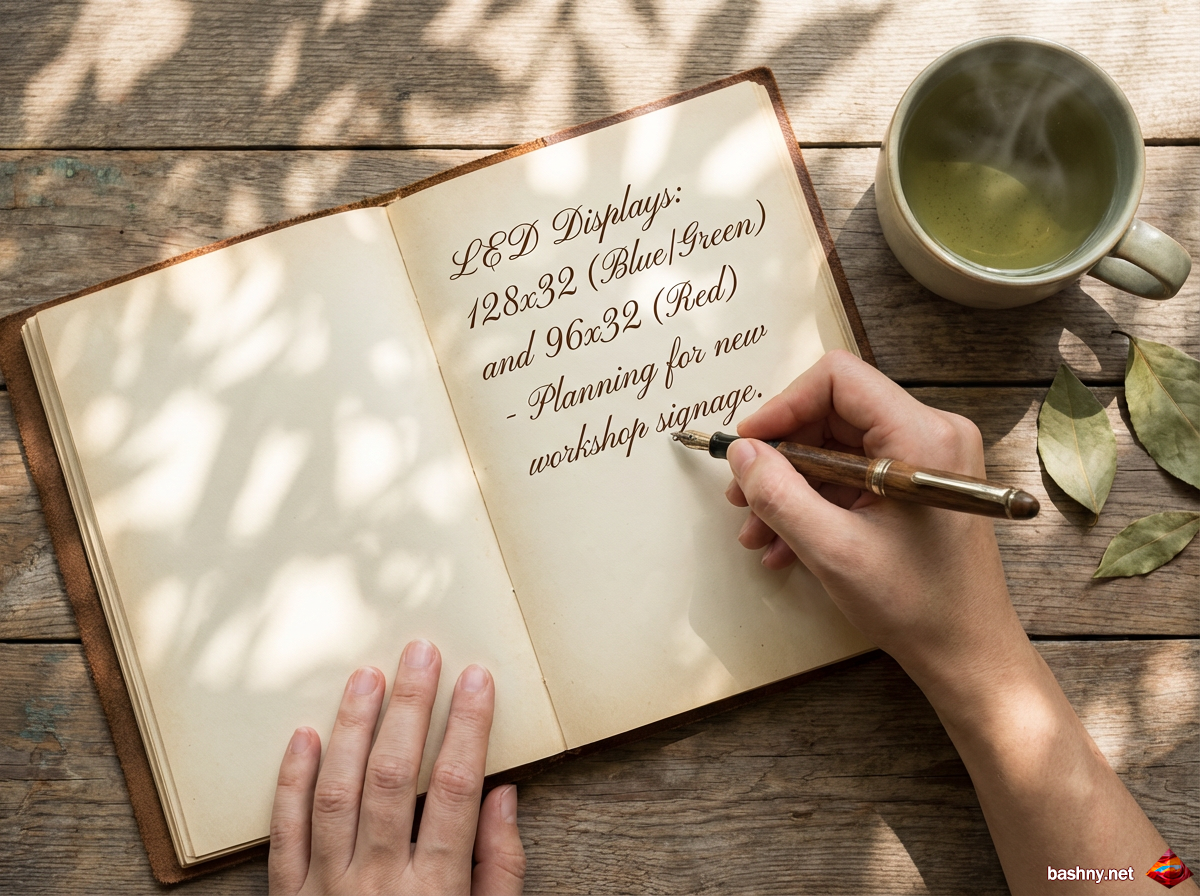 LED Displays:
128x32 (Blue|Green)
and 96x32 (Red)
- Planning for new
workshop signage.
bashny.net